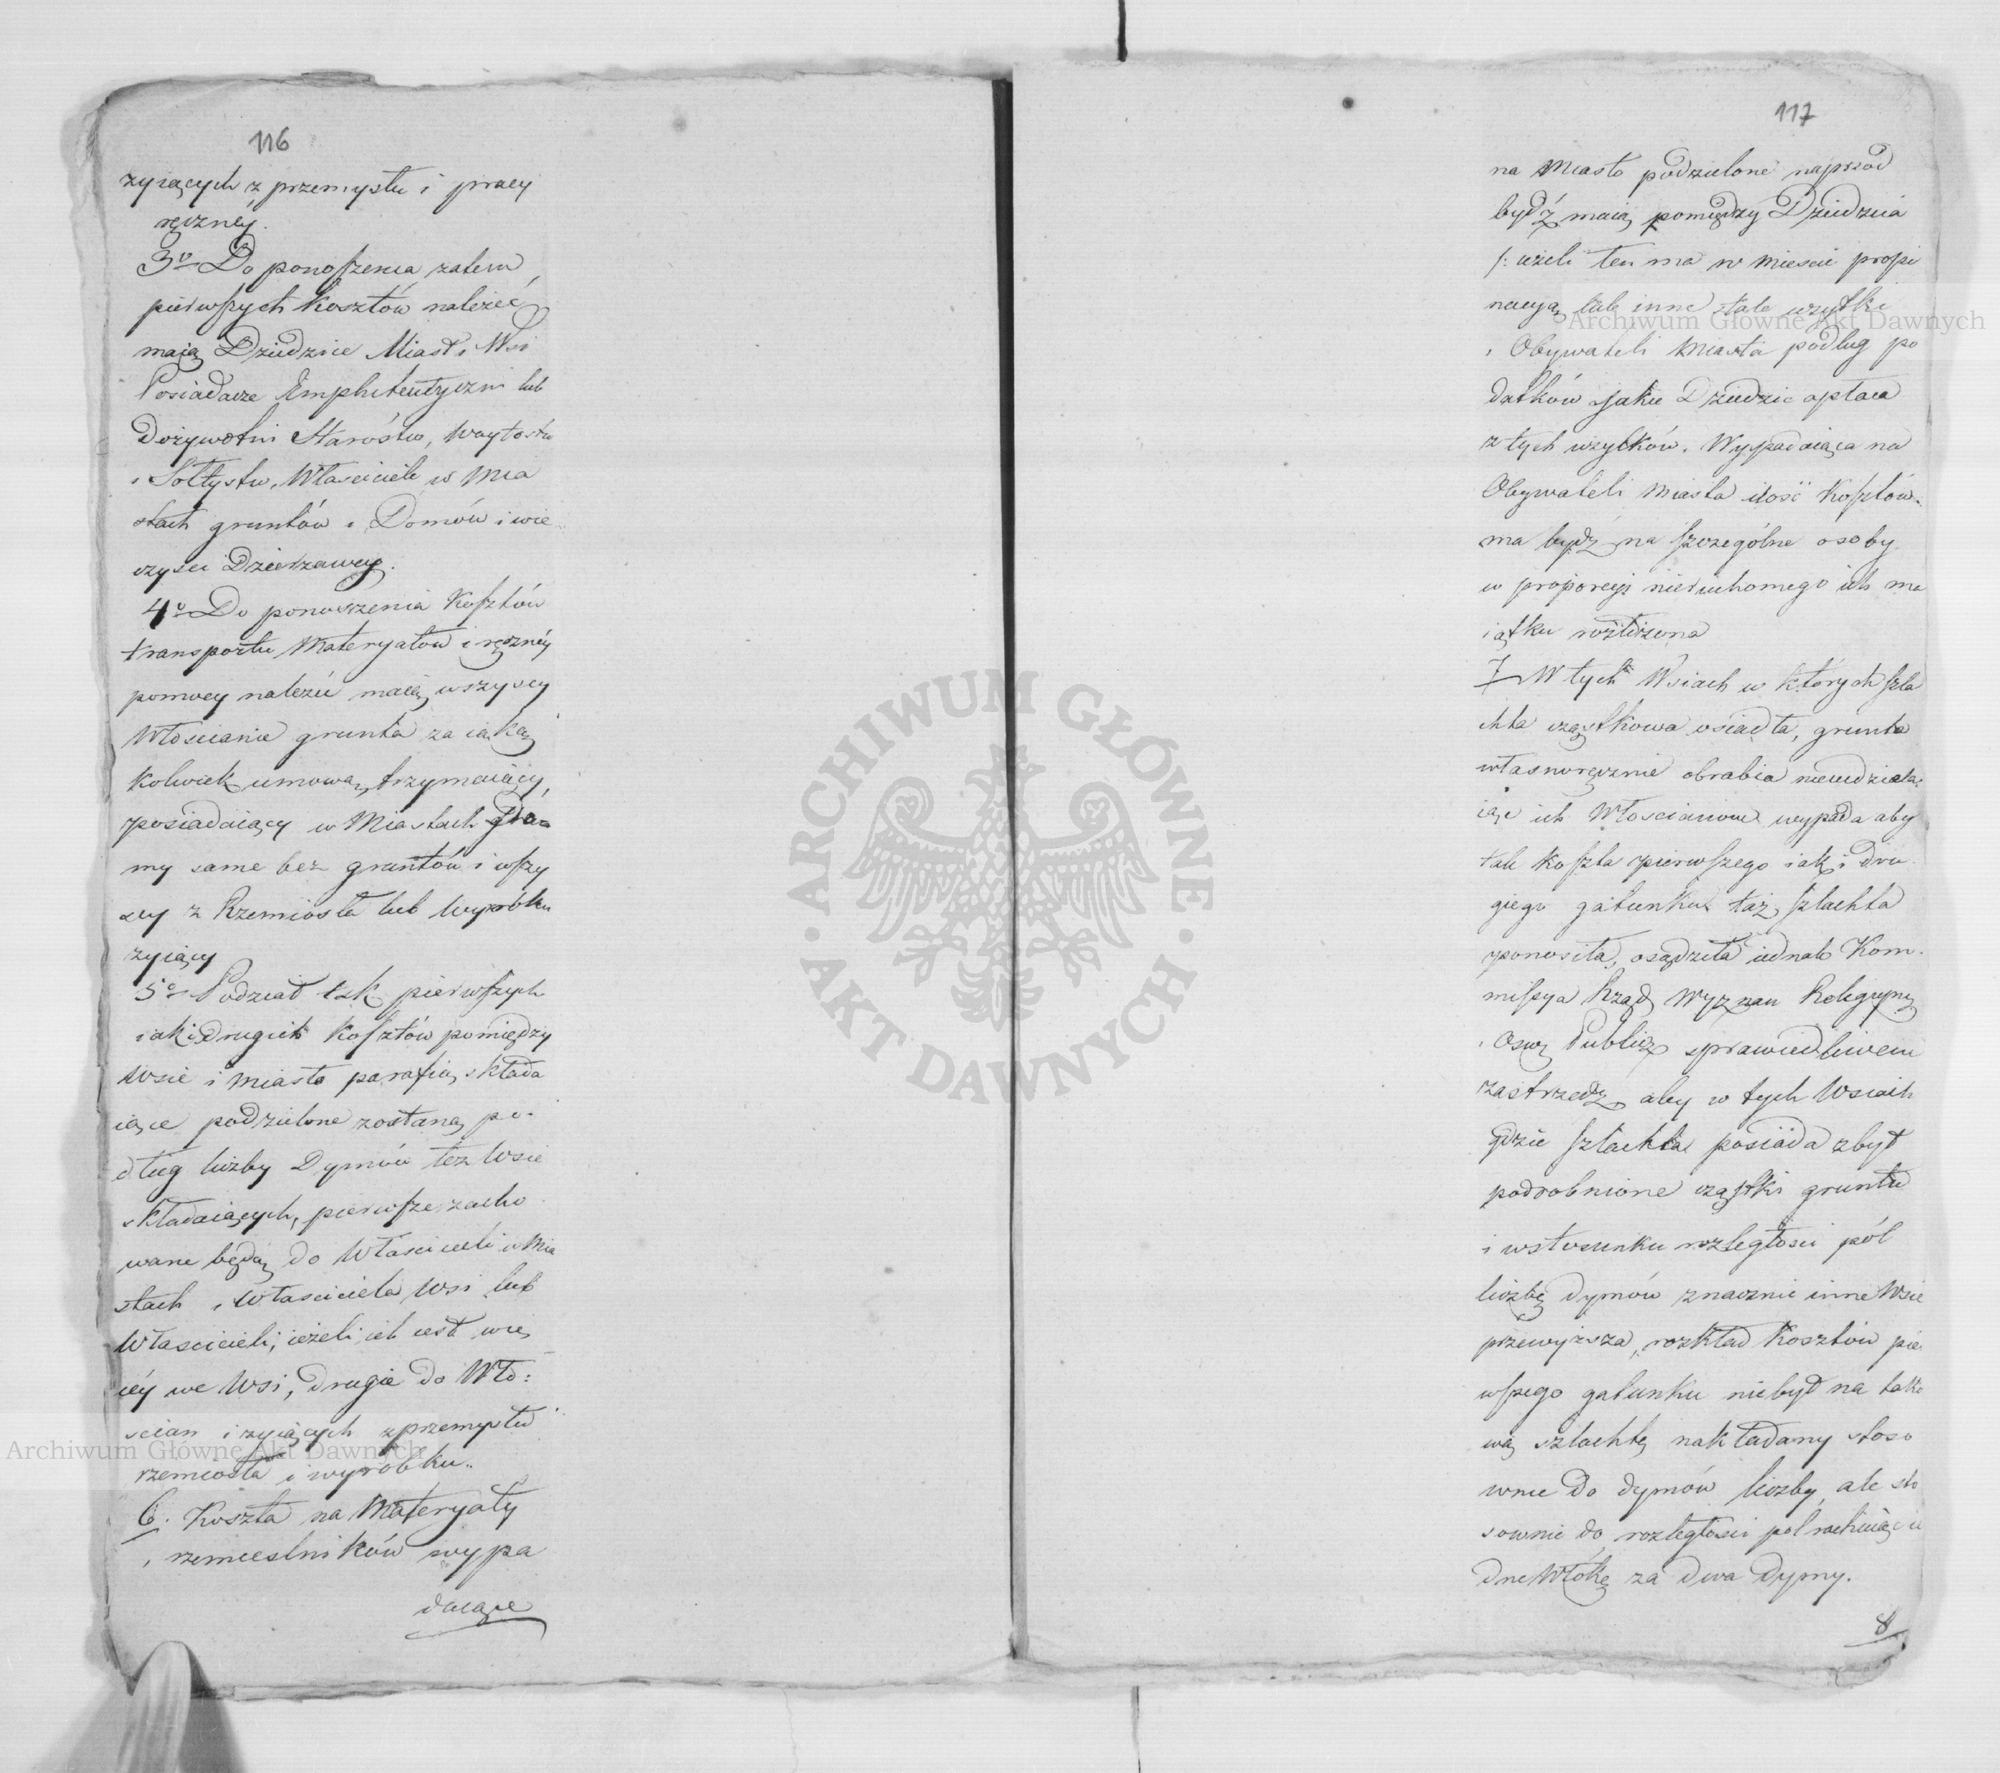 116
zyiących z przemysłu i pracy
ręczney.
3o Do ponoszenia zatem
pierwszych kosztów należéć
mają Dziedzice Miast i Wsi
Posiadacze Emphiteutyczni lub
Dożywotni Starostw, Woytostw
i Sołtystw, Właściciele w Mia
stach gruntów i Domów i wie
czyści Dzierżawcy.
4o Do ponoszenia Kosztów
transportu Materyałów i ręcznéy
pomocy należeć maią wszyscy
Włościanie grunta za iaką
kolwiek umową trzymaiący,
posiadaiący w Miastach Do=
my same bez gruntów i wszy
scy z Rzemiosła lub Wyrobku
żyiący
5o Podział tak pierwszych
iak i drugich Kosztów pomiędzy
Wsie i Miasta parafią składa
iące podzielone zostaną po-
dług liczby Dymów też Wsie
składaiących, pierwsze zacho
wane będą do Właścicieli w Mia
stach i Właściciela Wsi lub
Właścicieli, ieżeli ich iest wię
céy we Wsi, drugie do Wło=
ścian i zyiących z przemysłu
rzemiosła i wyrobku.
6. Koszta na Materyały
i rzemieślników wypa
daiące
117
na Miasto podzielone najprzod
bydź maią pomiędzy Dziedzica
/: ieżeli ten ma w mieście propi
nacyą lub inne stałe uzytki
i Obywateli Miasta podług po
datków jakie Dziedzic opłaca
z tych uzytków. Wypadaiąca na
Obywateli Miasta ilość Kosztów
ma bydź na szczególne osoby
w proporcyi nieruchomego ich ma
iątku rozłożona
7 W tych Wsiach w których szla
chta cząstkowa osiadła, grunta
własnoręcznie obrabia nieudziela
iąc ich Włościanom wypada aby
tak koszta pierwszego iak i dru
giego gatunku taż szlachta
ponosiła, osądziła iednak Kom-
missya Rząd. Wyznan Religiynych
i Ośw. Publicz sprawiedliwem
zastrzedz aby w tych Wsiach
gdzie szlachta posiada zbyt
podrobnione cząstki gruntu
i w stosunku rozległości pól
liczbą dymów znacznie inne Wsie
przewyższa, rozkład Kosztów pie
wszego gatunku niebył na tako
wą szlachtę nakładany stoso
wnie do dymów liczby, ale sto
sownie do rozległości pol rachuiąc ie
dne Włókę za dwa dymy.
8
Archiwum Główne Akt Dawnych
Archiwum Główne Akt Dawnych
ARCHIWUM GŁÓWNE · AKT DAWNYCH ·